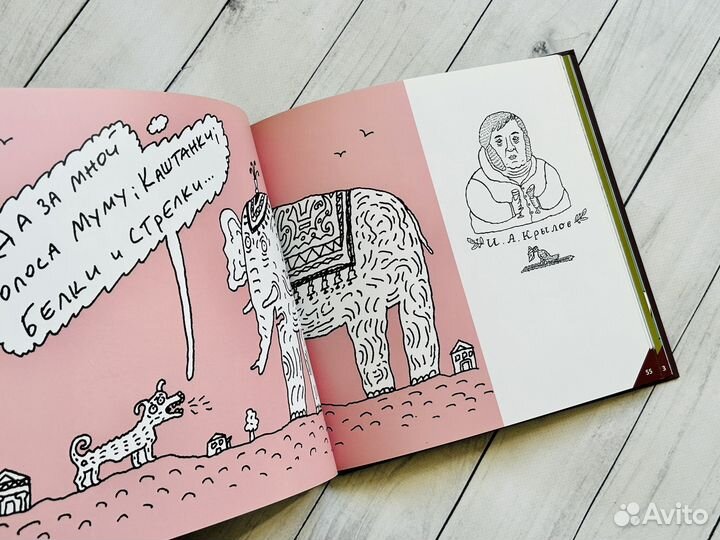 ДА ЗА МНОЙ
ГОЛОСА МУМУ, КАШТАНКИ,
БЕЛКИ И СТРЕЛКИ...
И. А. КРЫЛОВ
55
3
Avito